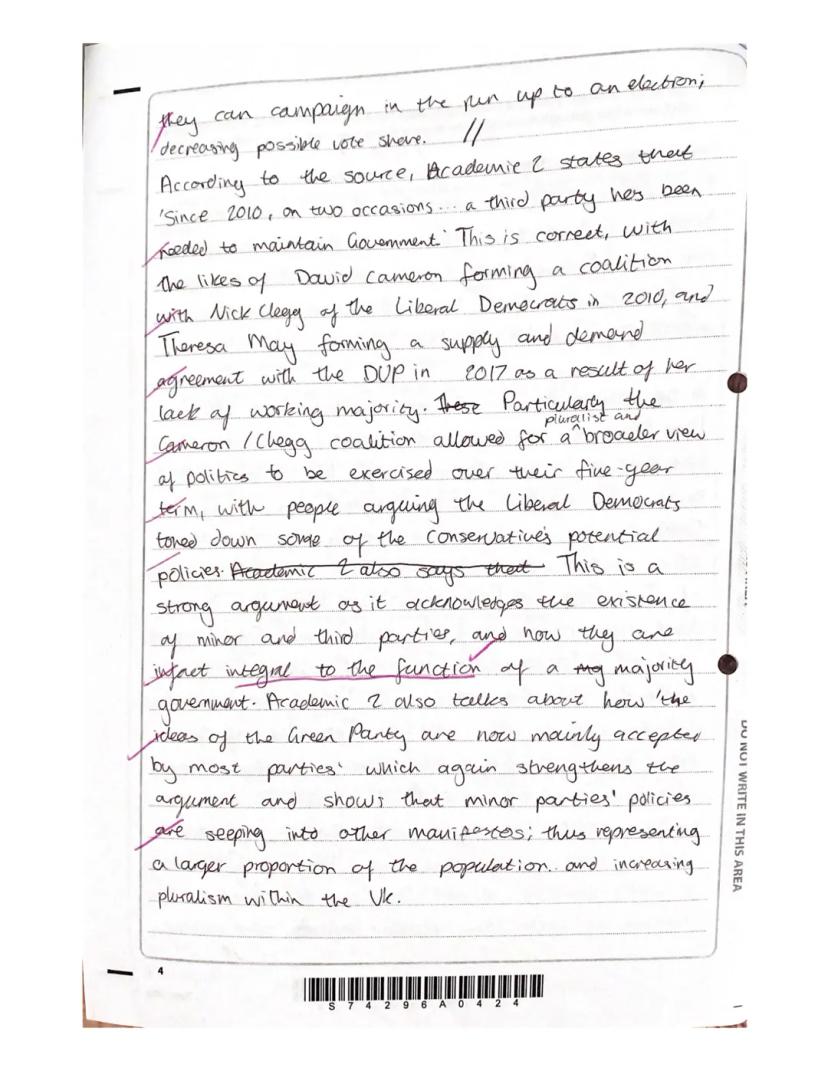 they can campaign in the run up to an election;
decreasing possible vote share. //
According to the source, Academic 2 states that
'Since 2010, on two occasions... a third party has been
needed to maintain Government.' This is correct, with
the likes of David Cameron forming a coalition
with Nick Clegg of the Liberal Democrats in 2010, and
Theresa May forming a supply and demand
agreement with the DUP in 2017 as a result of her
lack of working majority. These Particularly the
pluralist and
Cameron / Clegg coalition allowed for a ^ broader view
of politics to be exercised over their five-year
term, with people arguing the Liberal Democrats
toned down some of the Conservative's potential
policies. Academic 2 also says that This is a
strong argument as it acknowledges the existence
of minor and third parties, and how they are
infact integral to the function of a majority
government. Academic 2 also talks about how 'the
ideas of the Green Party are now mainly accepted
by most parties' which again strengthens the
argument and shows that minor parties' policies
are seeping into other manifestos; thus representing
a larger proportion of the population.. and increasing
pluralism within the UK.
4
S74296A0424
DO NOT WRITE IN THIS AREA